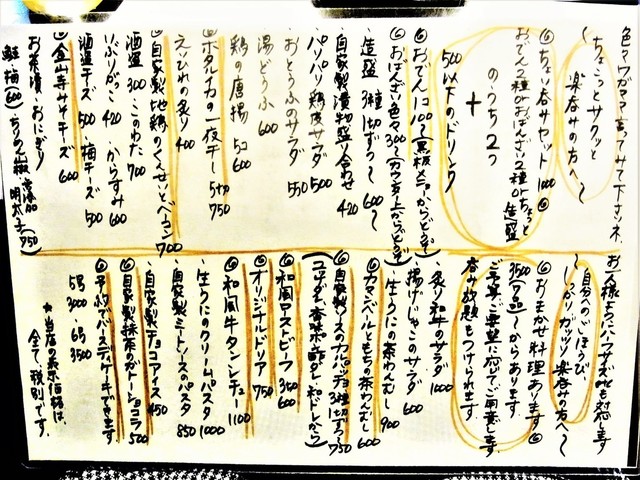 色々ワガママ言ってみて下さいネ
ちょこっとサクッと
楽呑みの方へ〜
⑥ちょい呑みセット 1000 ⑥
おでん2種orおばんざい2種orちょこっと造盛
のうち2つ
+
500以下のドリンク
⑥おでん 100〜(黒板メニューからどうぞ)
⑥おばんざい色々 300〜(カウンター上からどうぞ)
造盛 3種1切ずつ〜 600〜
自家製漬物盛り合わせ 420
パリパリ鶏皮サラダ 500
おとうふのサラダ 550
湯どうふ 600
鶏の唐揚 5コ 600
⑥ホタルイカの一夜干し 5切 750
えいひれの炙り 400
⑥自家製地鶏のくんせいとベーコン 700
酒盗 300 このわた 700
いぶりがっこ 420 からすみ 600
酒盗チーズ 500 梅チーズ 500
⑥金山寺みそチーズ 600
お茶漬・おにぎり
鮭 梅 (600) ちりめん山椒 明太子 (750)
お一人様もハーフサイズetc対応します
自分へのごほうび
しっかりガッツリ楽呑みの方へ〜
⑥おまかせ料理あります⑥
3500(7品)〜からあります
ご予算ご要望に応じてご用意します
呑み放題もつけられます
炙り和牛のサラダ 1000
揚げじゃこのサラダ 600
生うにの茶わんむし 900
⑥カマンベールともちの茶わんむし 600
⑥自家製ソースのカルパッチョ3種1切ずつ〜 750
(ユッケ、香味ポン酢、トマトetcから)
⑥和風ローストビーフ 350 600
⑥オリジナルドリア 750
⑥和風牛タンシチュー 1100
生うにのクリームパスタ 1000
自家製ミートソースのパスタ 850
・自家製チョコアイス 450
⑥自家製抹茶のガトーショコラ 500
⑥予約でバースデイケーキできます
5号 3000 6号 3500
★当店の表示価格は、
全て税別です。